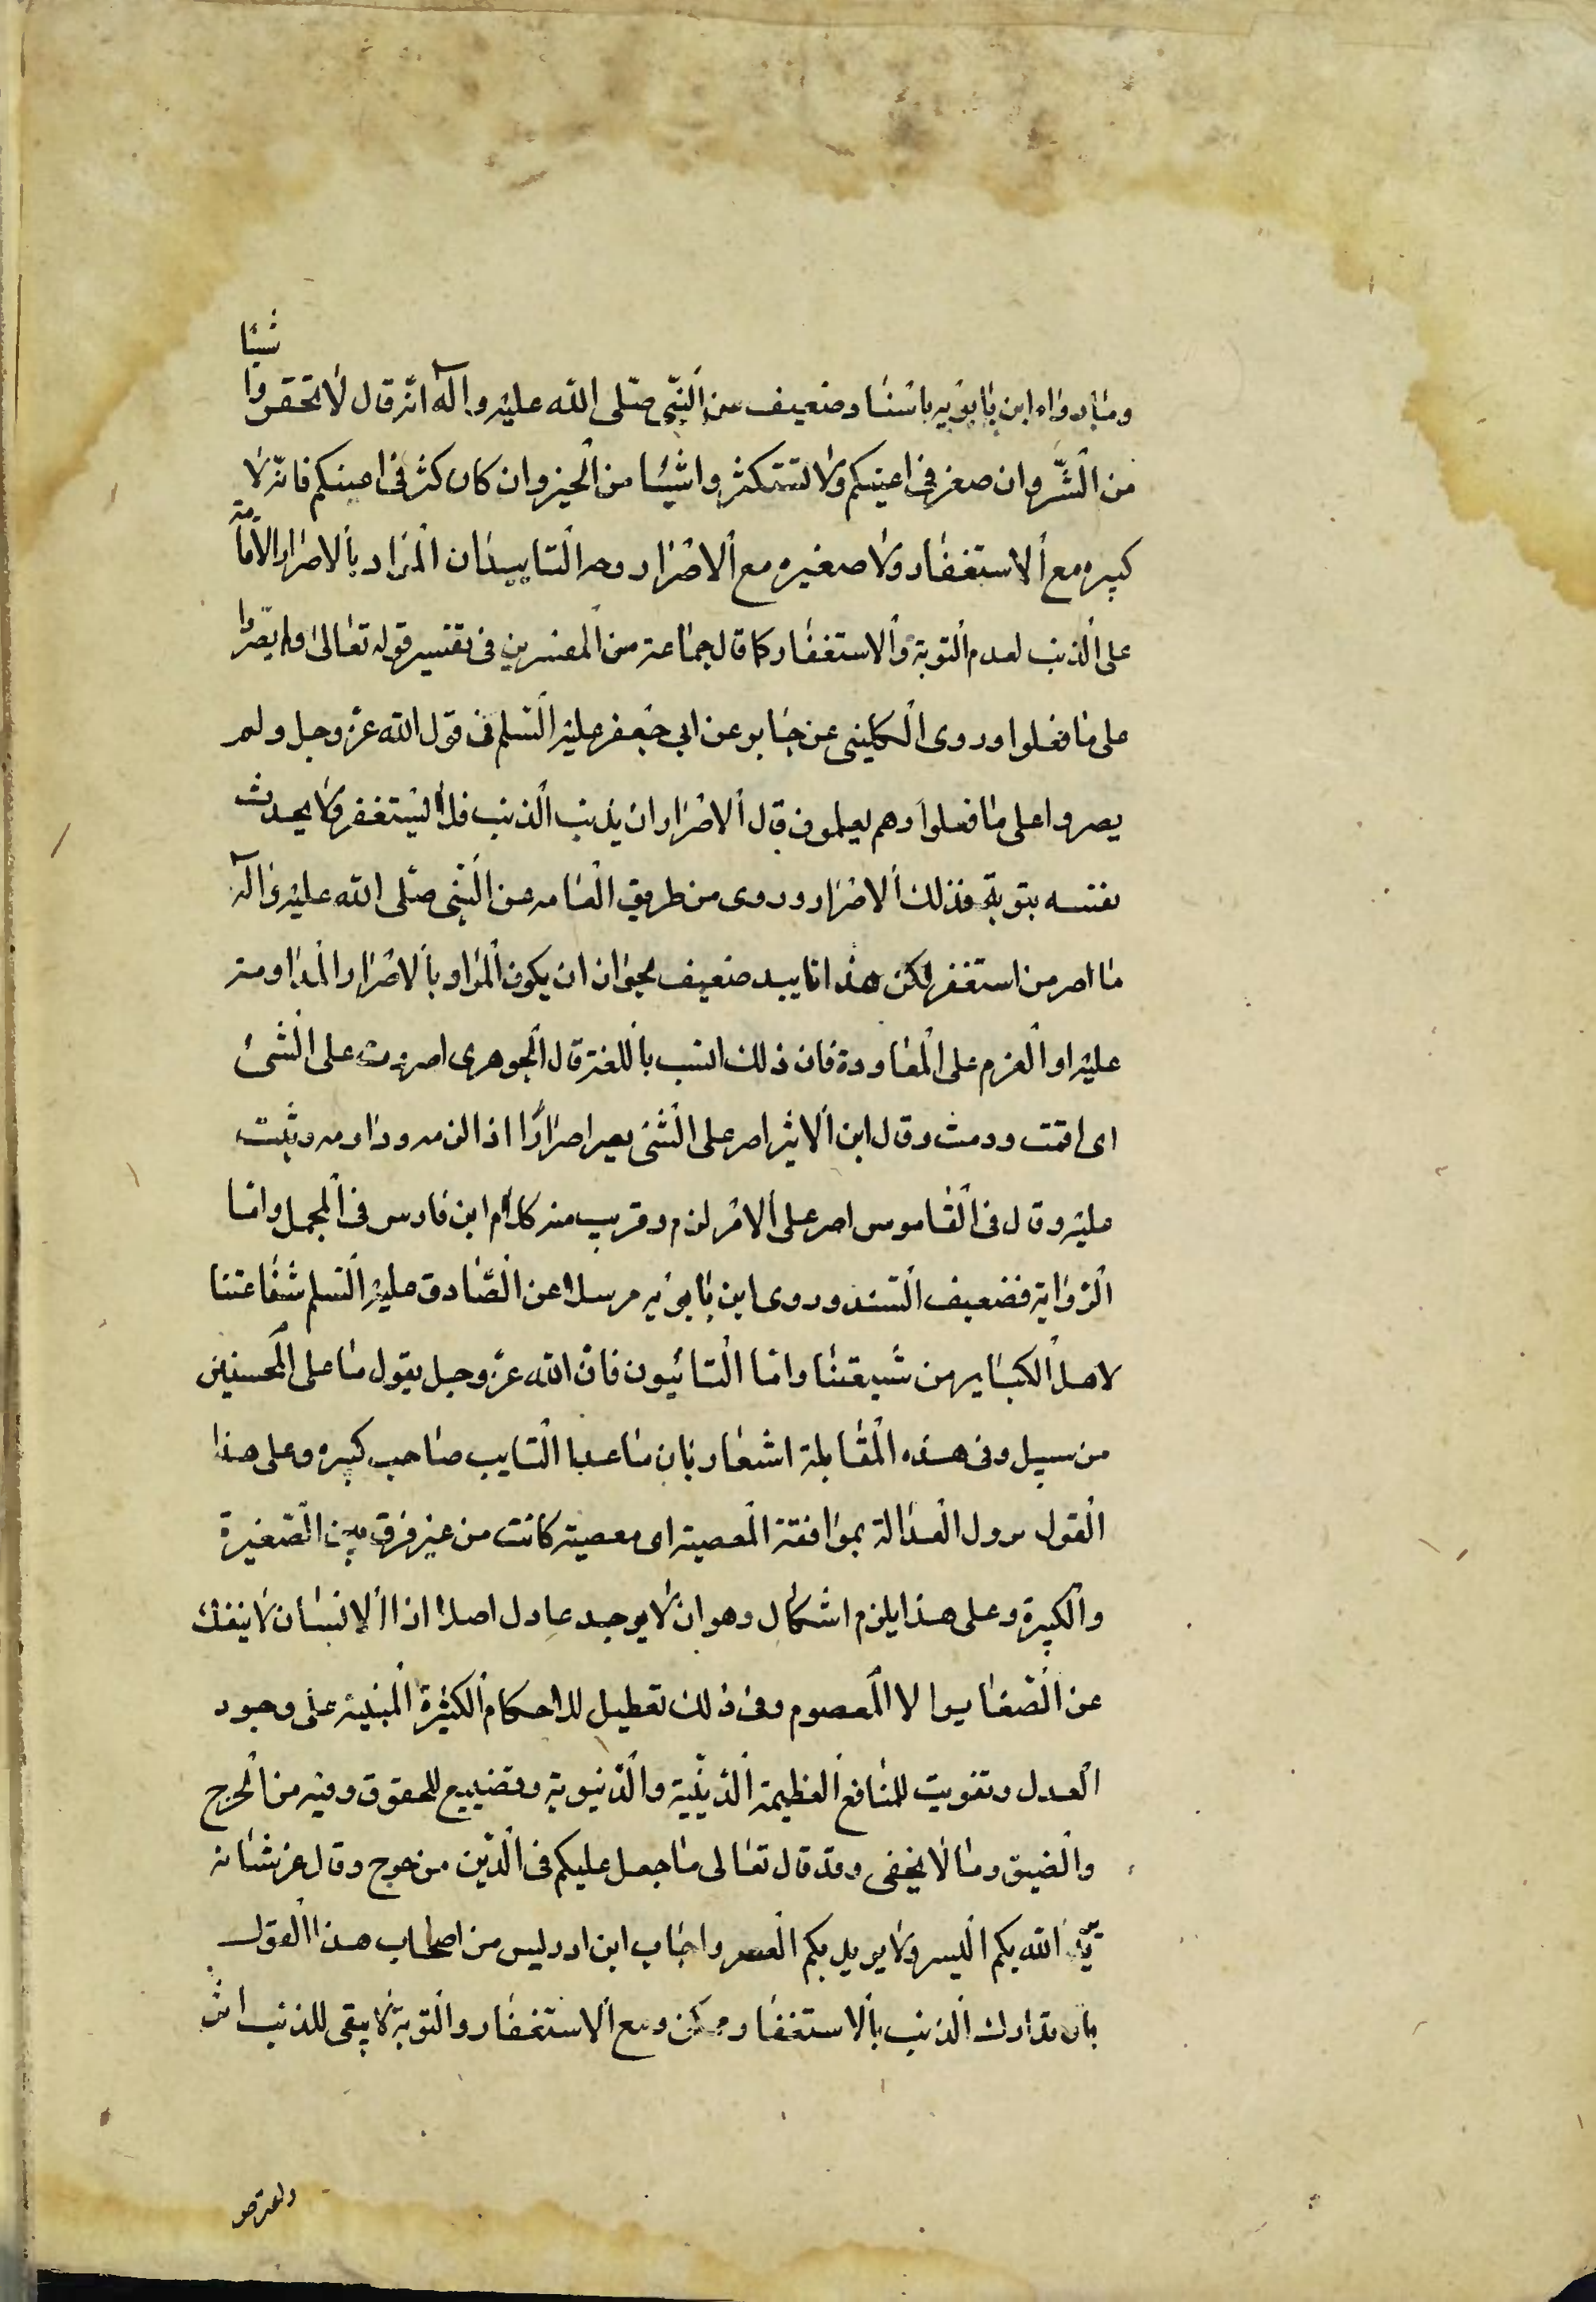 شيئا
وما رواه ابن بابويه باسناد ضعيف عن النبي صلى الله عليه وآله انه قال لا تحقروا
من الشر وان صغر في اعينكم ولا تستكثروا شيئا من الخير وان كان كثر في اعينكم فانه لا
كبيره مع الاستغفار ولا صغيره مع الاصرار وجه التاييد ان المراد بالاصرار الاقامة
على الذنب لعدم التوبة والاستغفار كما قال جماعة من المفسرين في تفسير قوله تعالى ولم يصروا
على ما فعلوا وروى الكليني عن جابر عن ابي جعفر عليه السلم في قول الله عز وجل ولم
يصروا على ما فعلوا وهم يعلمون قال الاصرار ان يذنب الذنب فلا يستغفر ولا يحدث
نفسه بتوبة فذلك الاصرار وروى من طريق العامه عن النبي صلى الله عليه وآله
ما اصر من استغفر لكن هذا تاييد ضعيف لجواز ان يكون المراد بالاصرار المداومة
عليه او العزم على المعاودة فان ذلك انسب باللغة قال الجوهرى اصررت على الشئ
اى اقمت ودمت وقال ابن الاثير اصر على الشئ يصر اصرارا اذا لزمه وداومه وثبت
عليه وقال في القاموس اصر على الامر لزم وقريب منه كلام ابن فارس في المجمل واما
الرواية فضعيف السند وروى ابن بابويه مرسلا عن الصادق عليه السلم شفاعتنا
لاهل الكباير من شيعتنا واما التائبون فان الله عز وجل يقول ما على المحسنين
من سبيل وفي هذه المقابلة اشعار بان ما عدا التايب صاحب كبيره وعلى هذا
القول يزول العدالة بموافقة المعصية اى معصية كانت من غير فرق بين الصغيرة
والكبيرة وعلى هذا يلزم اشكال وهو ان لا يوجد عادل اصلا اذا الانسان لا ينفك
عن الصغاير الا المعصوم وفي ذلك تعطيل للاحكام الكثيرة المبنية على وجود
العدل وتفويت للمنافع العظيمة الدينية والدنيوية وتضييع للحقوق وفيه من الحرج
والضيق وما لا يخفى وقد قال تعالى ما جعل عليكم في الدين من حرج وقال عز شانه
يريد الله بكم اليسر ولا يريد بكم العسر واجاب ابن ادريس من اصحاب هذا القول
بان تدارك الذنب بالاستغفار ممكن ومع الاستغفار والتوبة لا يبقى للذنب اثر